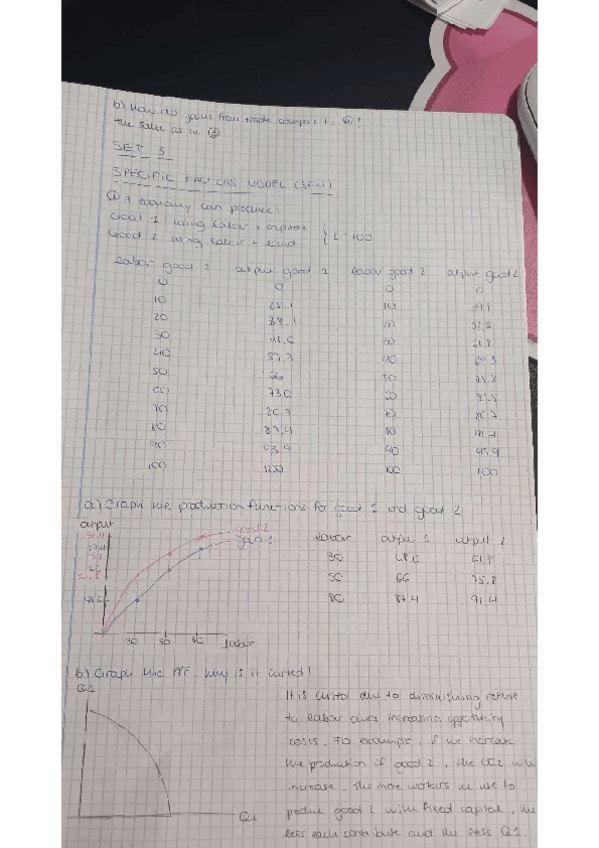 b) How do gains from trade compare to
the same as in
SET 3
SPECIFIC FACTORS MODEL (SFM)
① economy can produce:
Good 1: using labor + capital
Good 2: using labor + land
L=100
labor good 1 output good 1 labor good 2 output good 2
0 0 0 0
10 25.1 10 39.8
20 38.1 20 52.5
30 48.6 30 61.8
40 57.7 40 69.3
50 66 50 75.8
60 73.6 60 81.5
70 80.7 70 86.7
80 87.4 80 91.4
90 93.9 90 95.9
100 100 100 100
a) Graph the production functions for good 1 and good 2
output
good 2
good 1
labor output 1 output 2
30 48.6 61.8
50 66 75.8
80 87.4 91.4
30 50 80 labor
b) Graph the PPF. Why is it curved?
Q2
It is curved due to diminishing returns
to labor and increasing opportunity
costs. For example, if we increase
the production of good 2, the will
increase. The more workers we use to
produce good 2 with fixed capital, the
less each contribute and the less Q1.
Q1